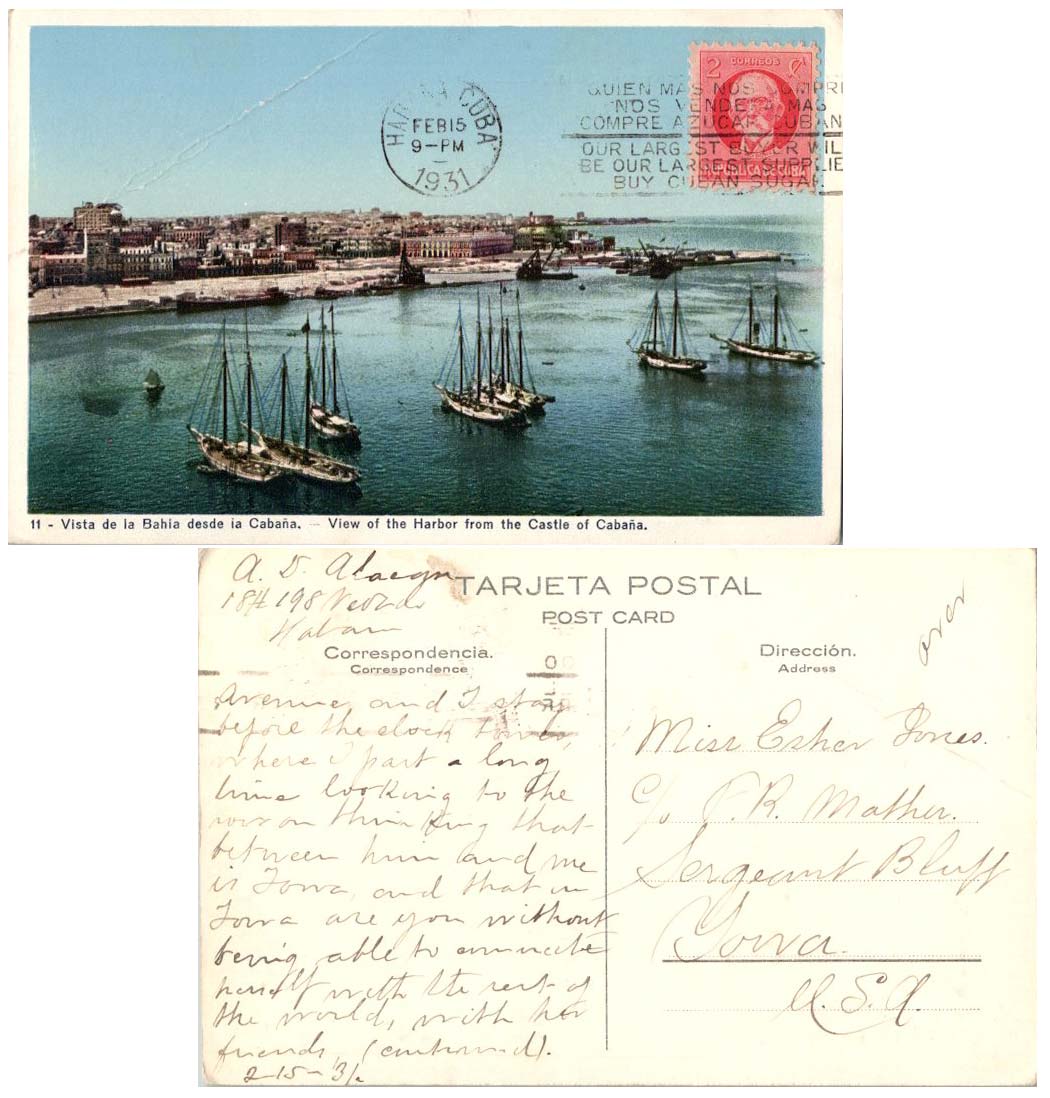 HABANA CUBA
FEB 15
9-PM
1931
QUIEN MAS NOS COMPRE
NOS VENDE MAS
COMPRE AZUCAR CUBAN
OUR LARGEST BUYER WILL
BE OUR LARGEST SUPPLIE
BUY CUBAN SUGAR
CORREOS
2 C
REPUBLICA DE CUBA
11 - Vista de la Bahia desde la Cabaña. — View of the Harbor from the Castle of Cabaña.
A. D.
18 # 198 Vedado
Habana
TARJETA POSTAL
POST CARD
over
Correspondencia.
Correspondence
Dirección.
Address
Avenue, and I stay
before the clock tower,
where I part a long
time looking to the
thinking that
between him and me
is Iowa, and that in
Iowa are you without
being able to
herself with the rest of
the world, with her
friends, (continued).
2-15-31.
Miss Esher Jones.
c/o F. R. Mather.
Sergeant Bluff
Iowa.
U. S. A.